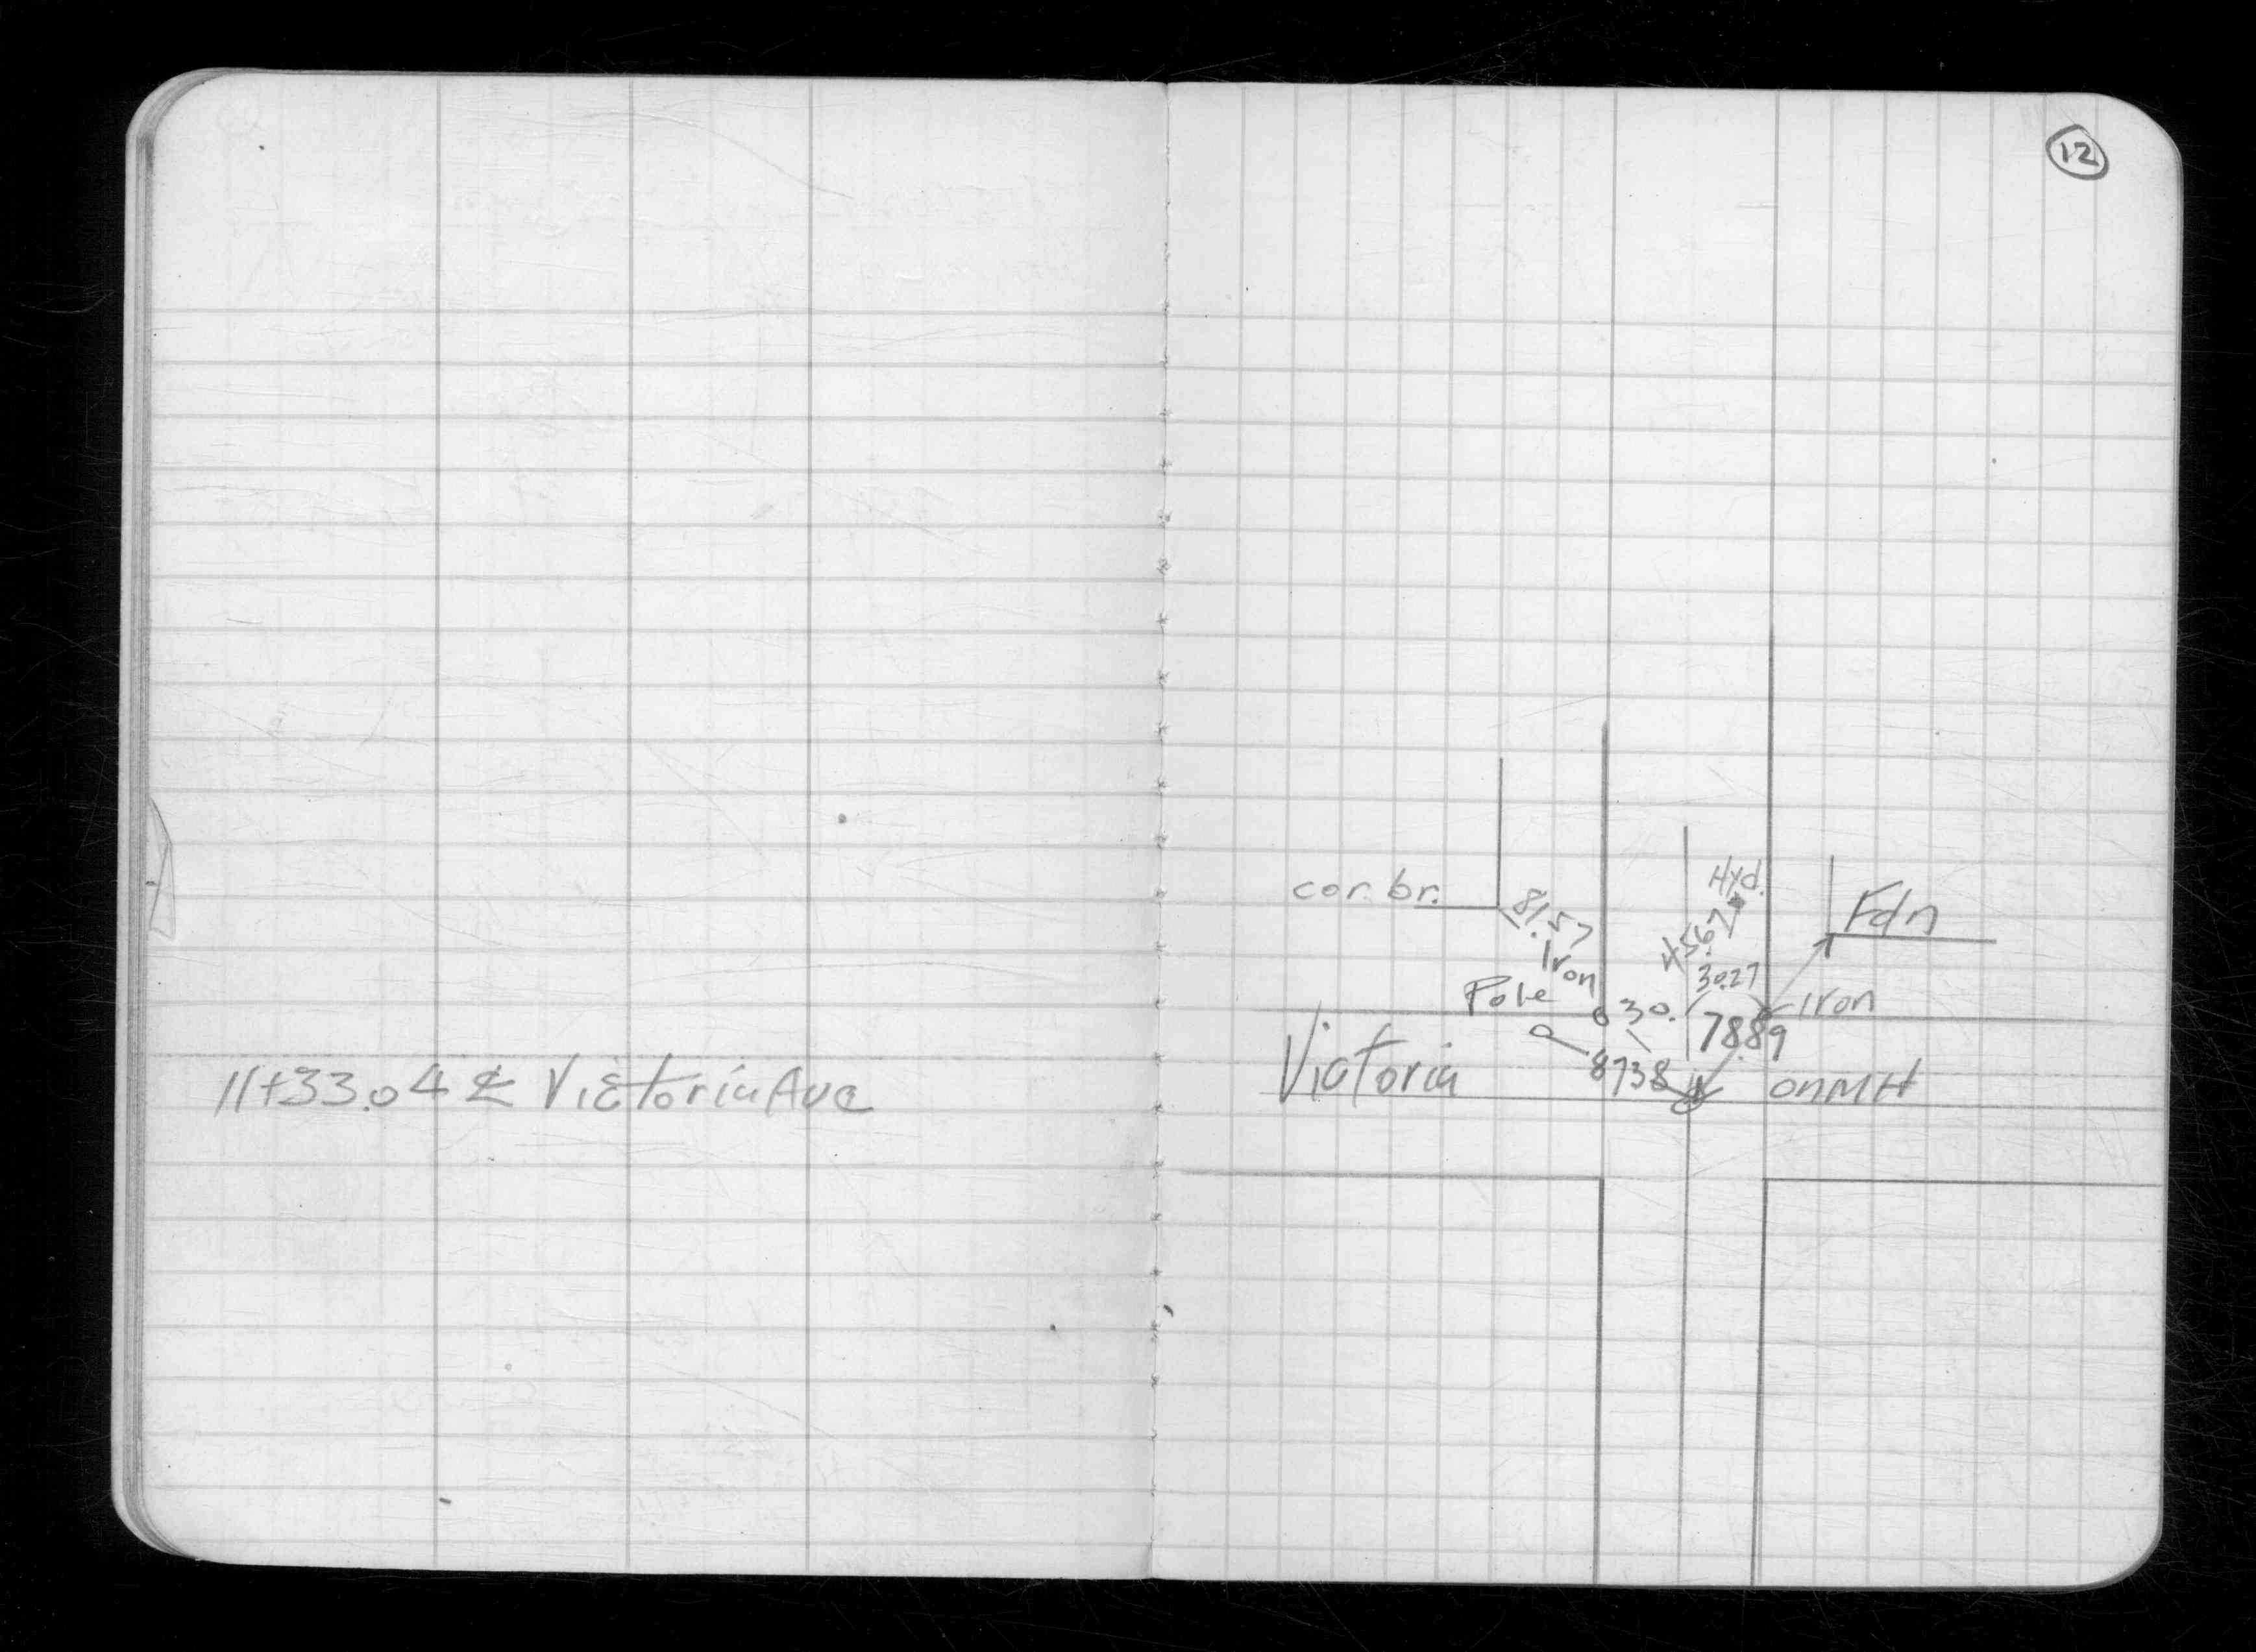 12
11+33.04 ℄ Victoria Ave
Hyd.
cor. br.
81.57
45.67
Fdn
Iron
30.27
Pole
30.
Iron
78.89
Victoria
87.38
on MH